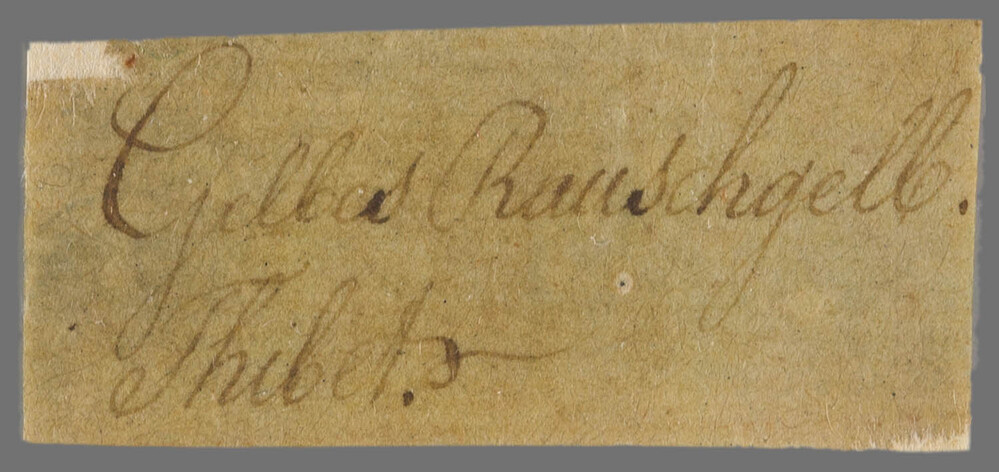 Gelbes Rauschgelb.
Thibet.